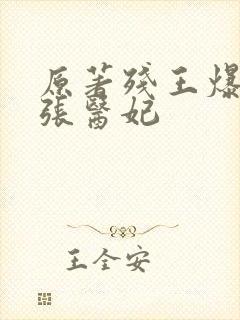 原著残王爆
張醫妃
王全安